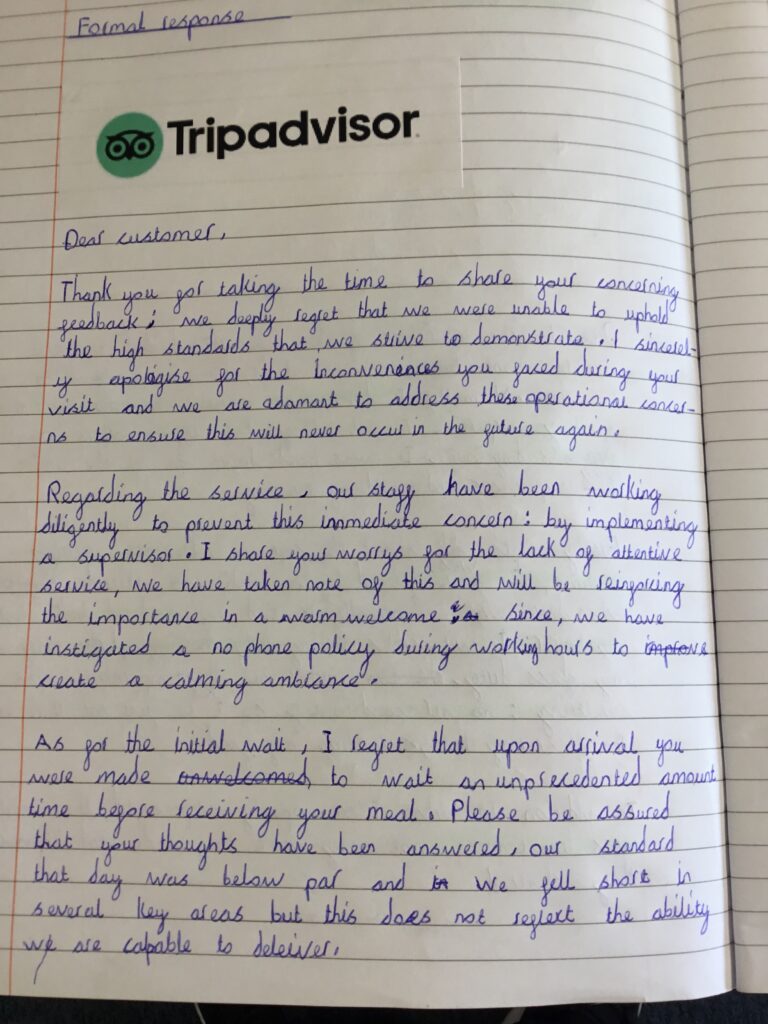 Formal response
Tripadvisor
Dear customer,
Thank you for taking the time to share your concerning
feedback; we deeply regret that we were unable to uphold
the high standards that we strive to demonstrate. I sincerel-
y apologise for the inconveniences you faced during your
visit and we are adamant to address these operational concer-
ns to ensure this will never occur in the future again.
Regarding the service, our staff have been working
diligently to prevent this immediate concern: by implementing
a supervisor. I share your worrys for the lack of attentive
service, we have taken note of this and will be reinforcing
the importance in a warm welcome; since, we have
instigated a no phone policy during working hours to improve
create a calming ambiance.
As for the initial wait, I regret that upon arrival you
were made unwelcomed, to wait an unprecedented amount
time before receiving your meal. Please be assured
that your thoughts have been answered, our standard
that day was below par and in we fell short in
several key areas but this does not reflect the ability
we are capable to deleiver.